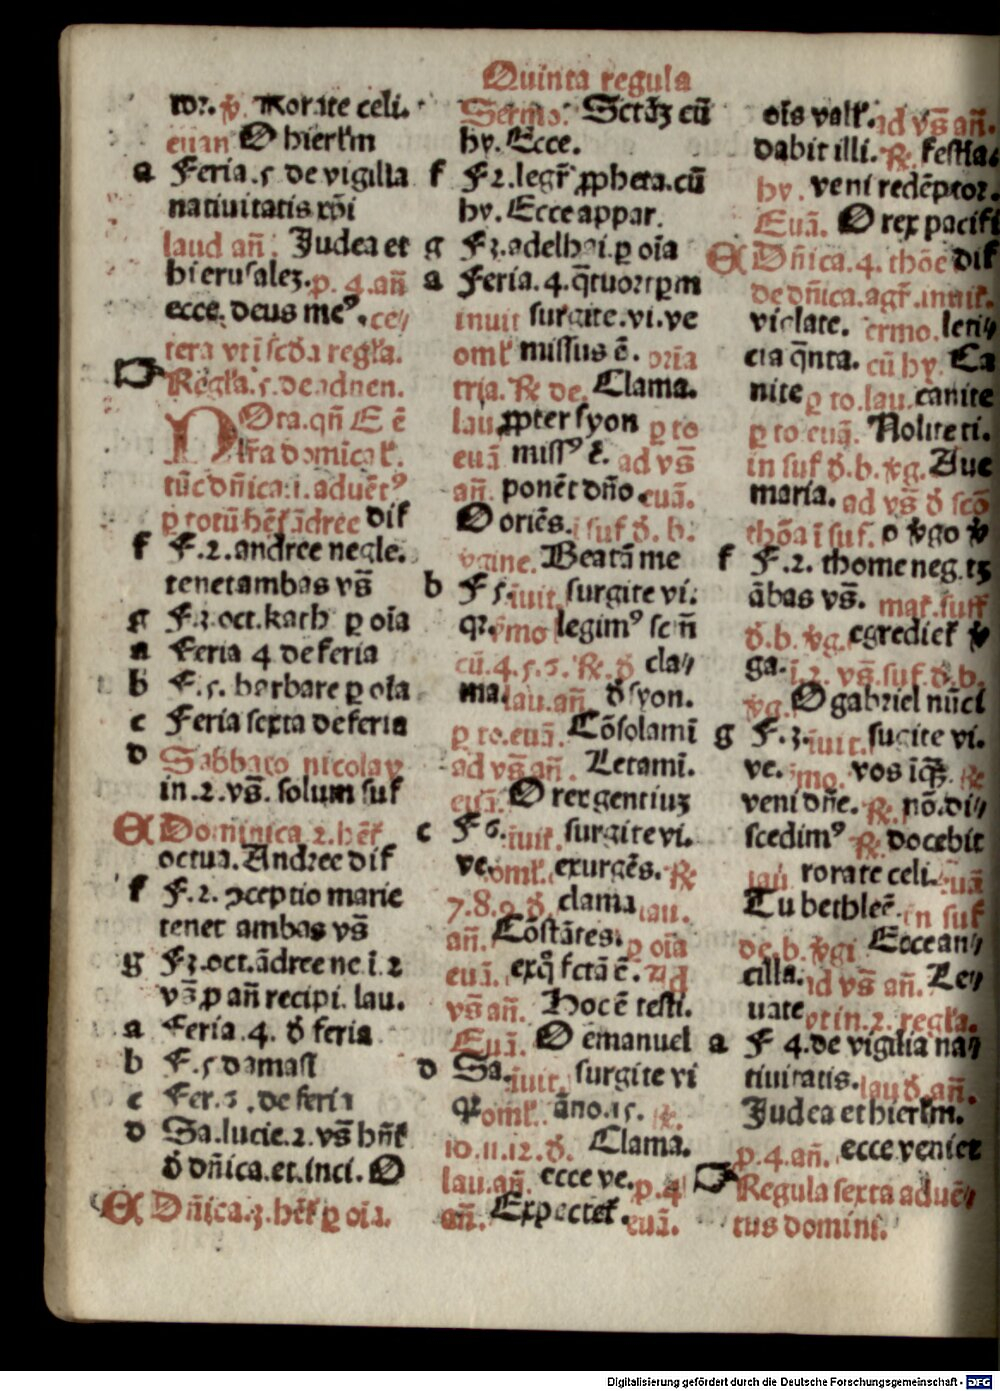 Quinta regula
roꝛ. ꝟ. Rorate celi.
euan O hierłm
a Feria.5 de vigilia
natiuitatis xp̄i
laud an̄. Judea et
hierusalez. p. 4. an̄
ecce. deus meꝰ. ce//
tera vt ī scd̄a regła.
Regła.5. de aduen.
NOta. qn̄ E ē
lr̄a domicał.
tūc dn̄ica. i. aduētꝰ
ꝑ totū hēł ādree dif
f F.2. andree negle.
tenet ambas vs̄
g F.3. oct. kath ꝑ oīa
a Feria 4 de feria
b F.5. barbare ꝑ oīa
c Feria sexta de feria
d Sabbato nicolay
in.2. vs̄. solum suf
A Dominica 2. hēł
octua. Andree dif
f F.2. ꝯceptio marie
tenet ambas vs̄
g F.3. oct. ādree ne ī.2
vs̄ ꝑ an̄ recipi. lau.
a Feria.4. d̄ feria
b F.5 damasi
c Fer.6. de feria
d Sa. lucie.2. vs̄ hn̄ł
d̄ dn̄ica. et. inci. O
A Dn̄ica.3. hēł ꝑ oīa.
Sermo. Sctāȝ cū
hy. Ecce.
f F2. legr̄ ꝓpheta. cū
hy. Ecce appar.
g F3. adelhai. ꝑ oīa
a Feria.4. q̄tuortꝑm
inuit surgite. vi. ve
omł missus ē. or̄ia
tria. ℟ de. Clama.
lau. ꝓpter syon ꝑ to
euā missꝰ ē. ad vs̄
an̄. ponēt dn̄o. euā.
O oriēs. ī suf d̄. b.
vgine. Beatā me
b F5. iuit. surgite vi.
qꝛ. ꝟmo legimꝰ scn̄
cū.4.5.6. ℟. d̄ cla//
ma. lau. an̄. d̄ syon.
ꝑ to. euā. Cōsolamī
ad vs̄ an̄. Letamī.
euā. O rex gentiuȝ
c F6. iuit. surgite vi.
ve. omł. exurgēs. ℟
7.8.9. d̄. clama lau.
an̄. Cōstātes. ꝑ oīa
euā. exq̊ fctā ē. ad
vs̄ an̄. Hoc ē testi.
Euā. O emanuel
d Sa. iuit. surgite vi
qꝛ omł. āno.15. ℟.
10.11.12. d̄. Clama.
lau. an̄. ecce ve. p.4
an̄. Expecteł. euā.
oīs vall̄. ad vs̄ an̄.
dabit illi. ℟. festīa
hy. veni redēptor.
Euā. O rex pacifi
A Dn̄ica.4. thōe dif
de dn̄ica. agr̄. inuit.
vigilate. ermo. leti//
cia q̄nta. cū hy. Ca
nite ꝑ to. lau. canite
ꝑ to euā. Nolite ti.
in suf d̄. b. vg. Aue
maria. ad vs̄ d̄ scō
thōa ī suf. o vgo v
f F.2. thome neg. tȝ
ābas vs̄. mat. suff
d̄. b. vg. egredieł v
ga. ī.2. vs̄. suf. d̄. b.
vg. O gabriel nūci
g F.3. iuit. sugite vi.
ve. ꝟmo. vos ℟
veni dn̄e. ℟. nō. di//
scedimꝰ ℟. docebit
lau rorate celi. euā
Tu bethleē. in suf
de. b. vgi Ecce an//
cilla. ad vs̄ an̄. Le//
uate vt in.2. regła.
a F 4. de vigilia na//
tiuitatis. lau d̄. an̄.
Judea et hierłm.
p.4. an̄. ecce veniet
Regula sexta aduē//
tus domini.
Digitalisierung gefördert durch die Deutsche Forschungsgemeinschaft - DFG